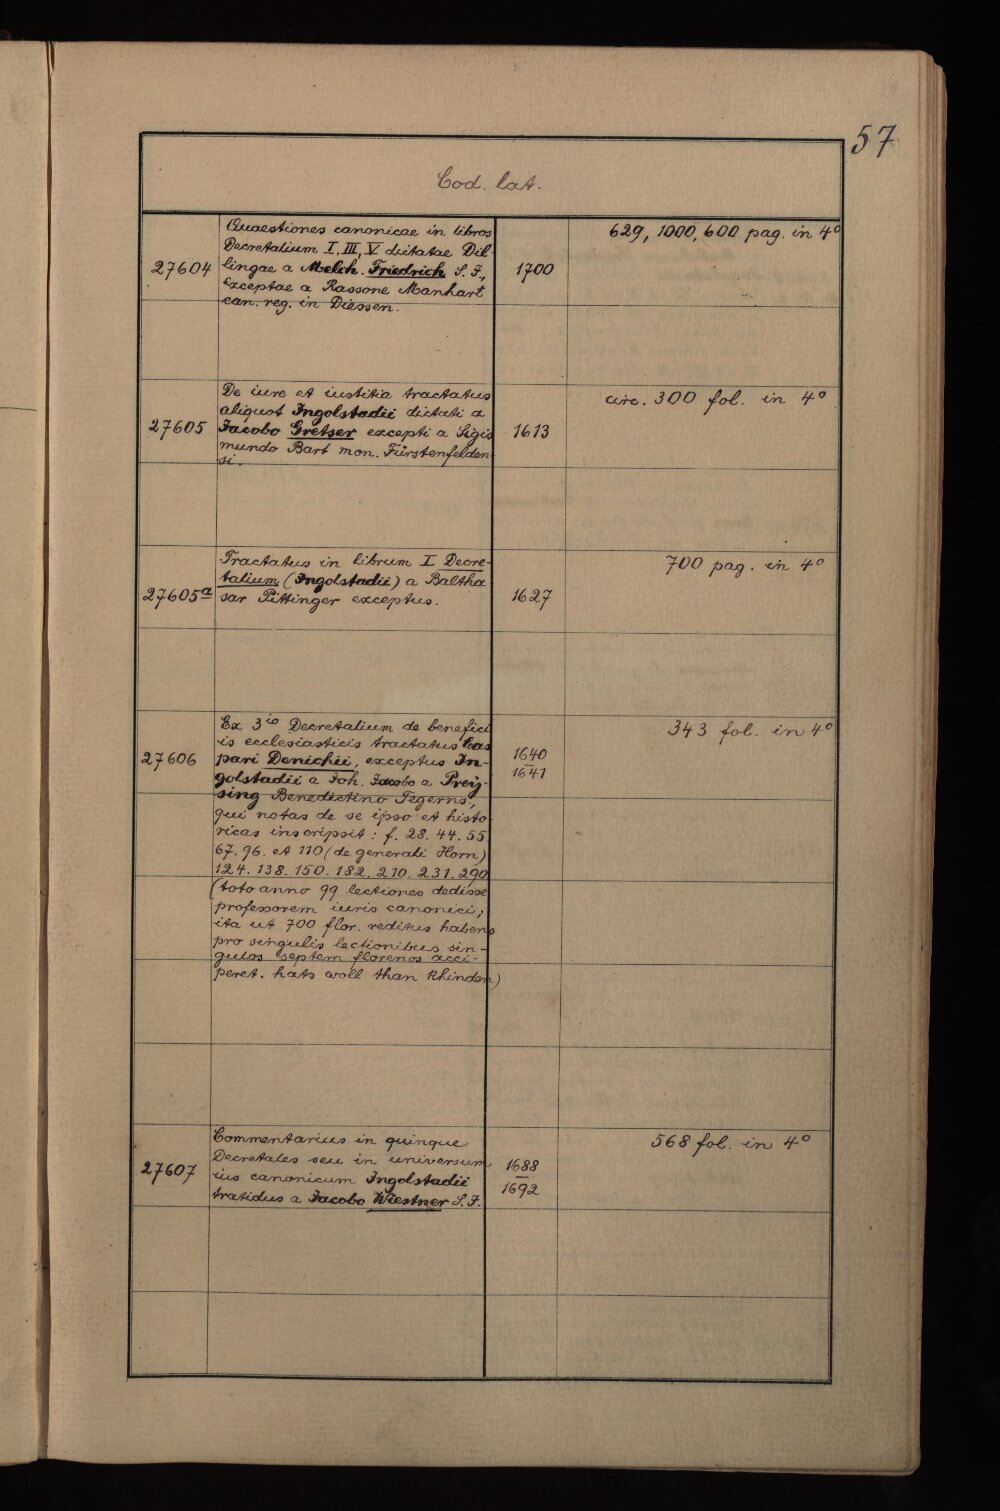 57
Cod. lat.
Quaestiones canonicae in libros
Decretalium I, III, V dictatae Dil-
lingae a Melch. Friedrich S. J.,
exceptae a Rassone Manhart
can. reg. in Diessen.
27604
1700
629, 1000, 600 pag. in 4°
De iure et iustitia tractatus
aliquot Ingolstadii dictati a
Jacobo Gretser excepti a Sigis
mundo Bart mon. Fürstenfelden
si.
27605
1613
circ. 300 fol. in 4°
Tractatus in librum I Decre-
talium (Ingolstadii) a Baltha
sar Pittinger exceptus.
27605a
1627
700 pag. in 4°
Ex 3io Decretalium de benefici
is ecclesiasticis tractatus Cas
pari Denichii, exceptus In-
golstadii a Joh. Jacobo a Prey-
sing Benedictino Tegerns.,
qui notas de se ipso et histo
ricas inscripsit: f. 28. 44. 55
67. 96. et 110 (de generali Horn)
124. 138. 150. 182. 210. 231. 290
(toto anno 99 lectiones dedisse
professorem iuris canonici;
ita ut 700 flor. reditus habens
pro singulis lectionibus sin-
gulos septem florenos acci-
peret. hats woll than khinden)
27606
1640
1641
343 fol. in 4°
Commentarius in quinque
Decretales seu in universum
ius canonicum Ingolstadii
tratidus a Jacobo Wiestner S. J.
27607
1688
1692
568 fol. in 4°